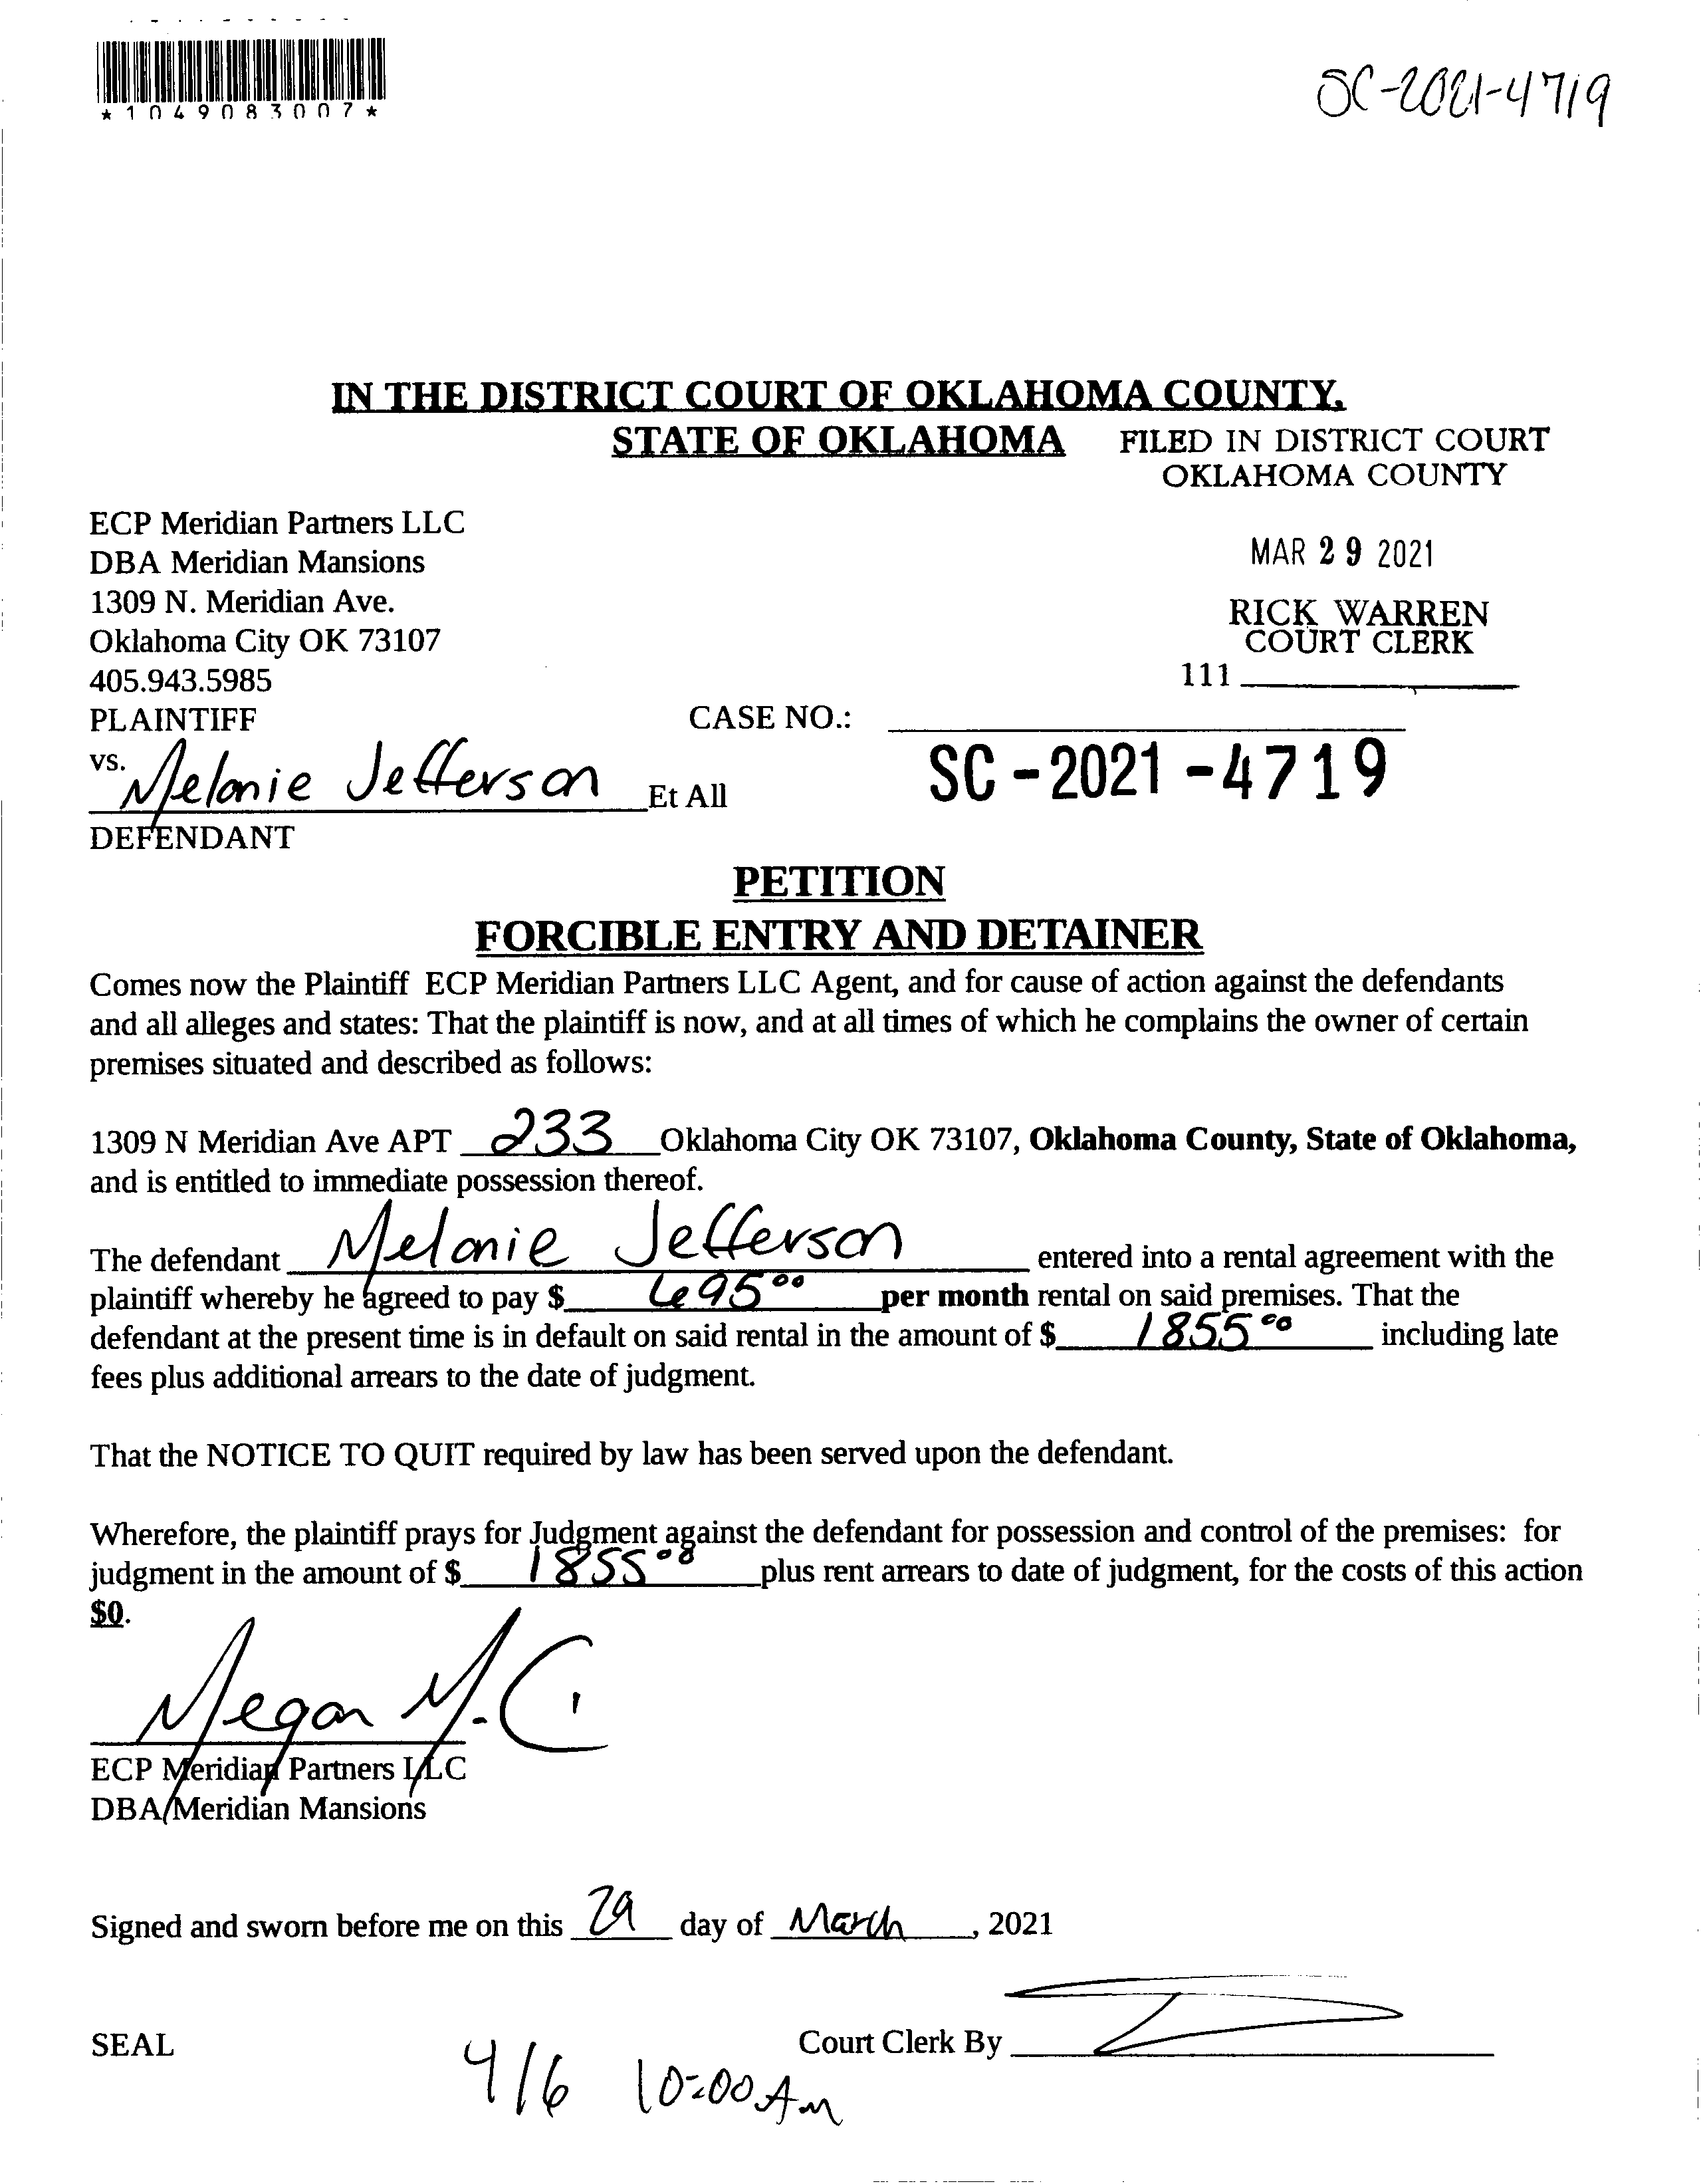 *1049083007*
SC-2021-4719
IN THE DISTRICT COURT OF OKLAHOMA COUNTY,
STATE OF OKLAHOMA
FILED IN DISTRICT COURT
OKLAHOMA COUNTY
ECP Meridian Partners LLC
DBA Meridian Mansions
1309 N. Meridian Ave.
Oklahoma City OK 73107
405.943.5985
MAR 29 2021
RICK WARREN
COURT CLERK
111
PLAINTIFF
CASE NO.:
vs. Melanie Jefferson Et All
SC-2021-4719
DEFENDANT
PETITION
FORCIBLE ENTRY AND DETAINER
Comes now the Plaintiff ECP Meridian Partners LLC Agent, and for cause of action against the defendants
and all alleges and states: That the plaintiff is now, and at all times of which he complains the owner of certain
premises situated and described as follows:
1309 N Meridian Ave APT 233 Oklahoma City OK 73107, Oklahoma County, State of Oklahoma,
and is entitled to immediate possession thereof.
The defendant Melanie Jefferson entered into a rental agreement with the
plaintiff whereby he agreed to pay $ 695 00 per month rental on said premises. That the
defendant at the present time is in default on said rental in the amount of $ 1855 00 including late
fees plus additional arrears to the date of judgment.
That the NOTICE TO QUIT required by law has been served upon the defendant.
Wherefore, the plaintiff prays for Judgment against the defendant for possession and control of the premises: for
judgment in the amount of $ 1855 00 plus rent arrears to date of judgment, for the costs of this action
$0.
Megan M. C
ECP Meridian Partners LLC
DBA Meridian Mansions
Signed and sworn before me on this 29 day of March, 2021
SEAL
Court Clerk By
4/6 10:00 Am